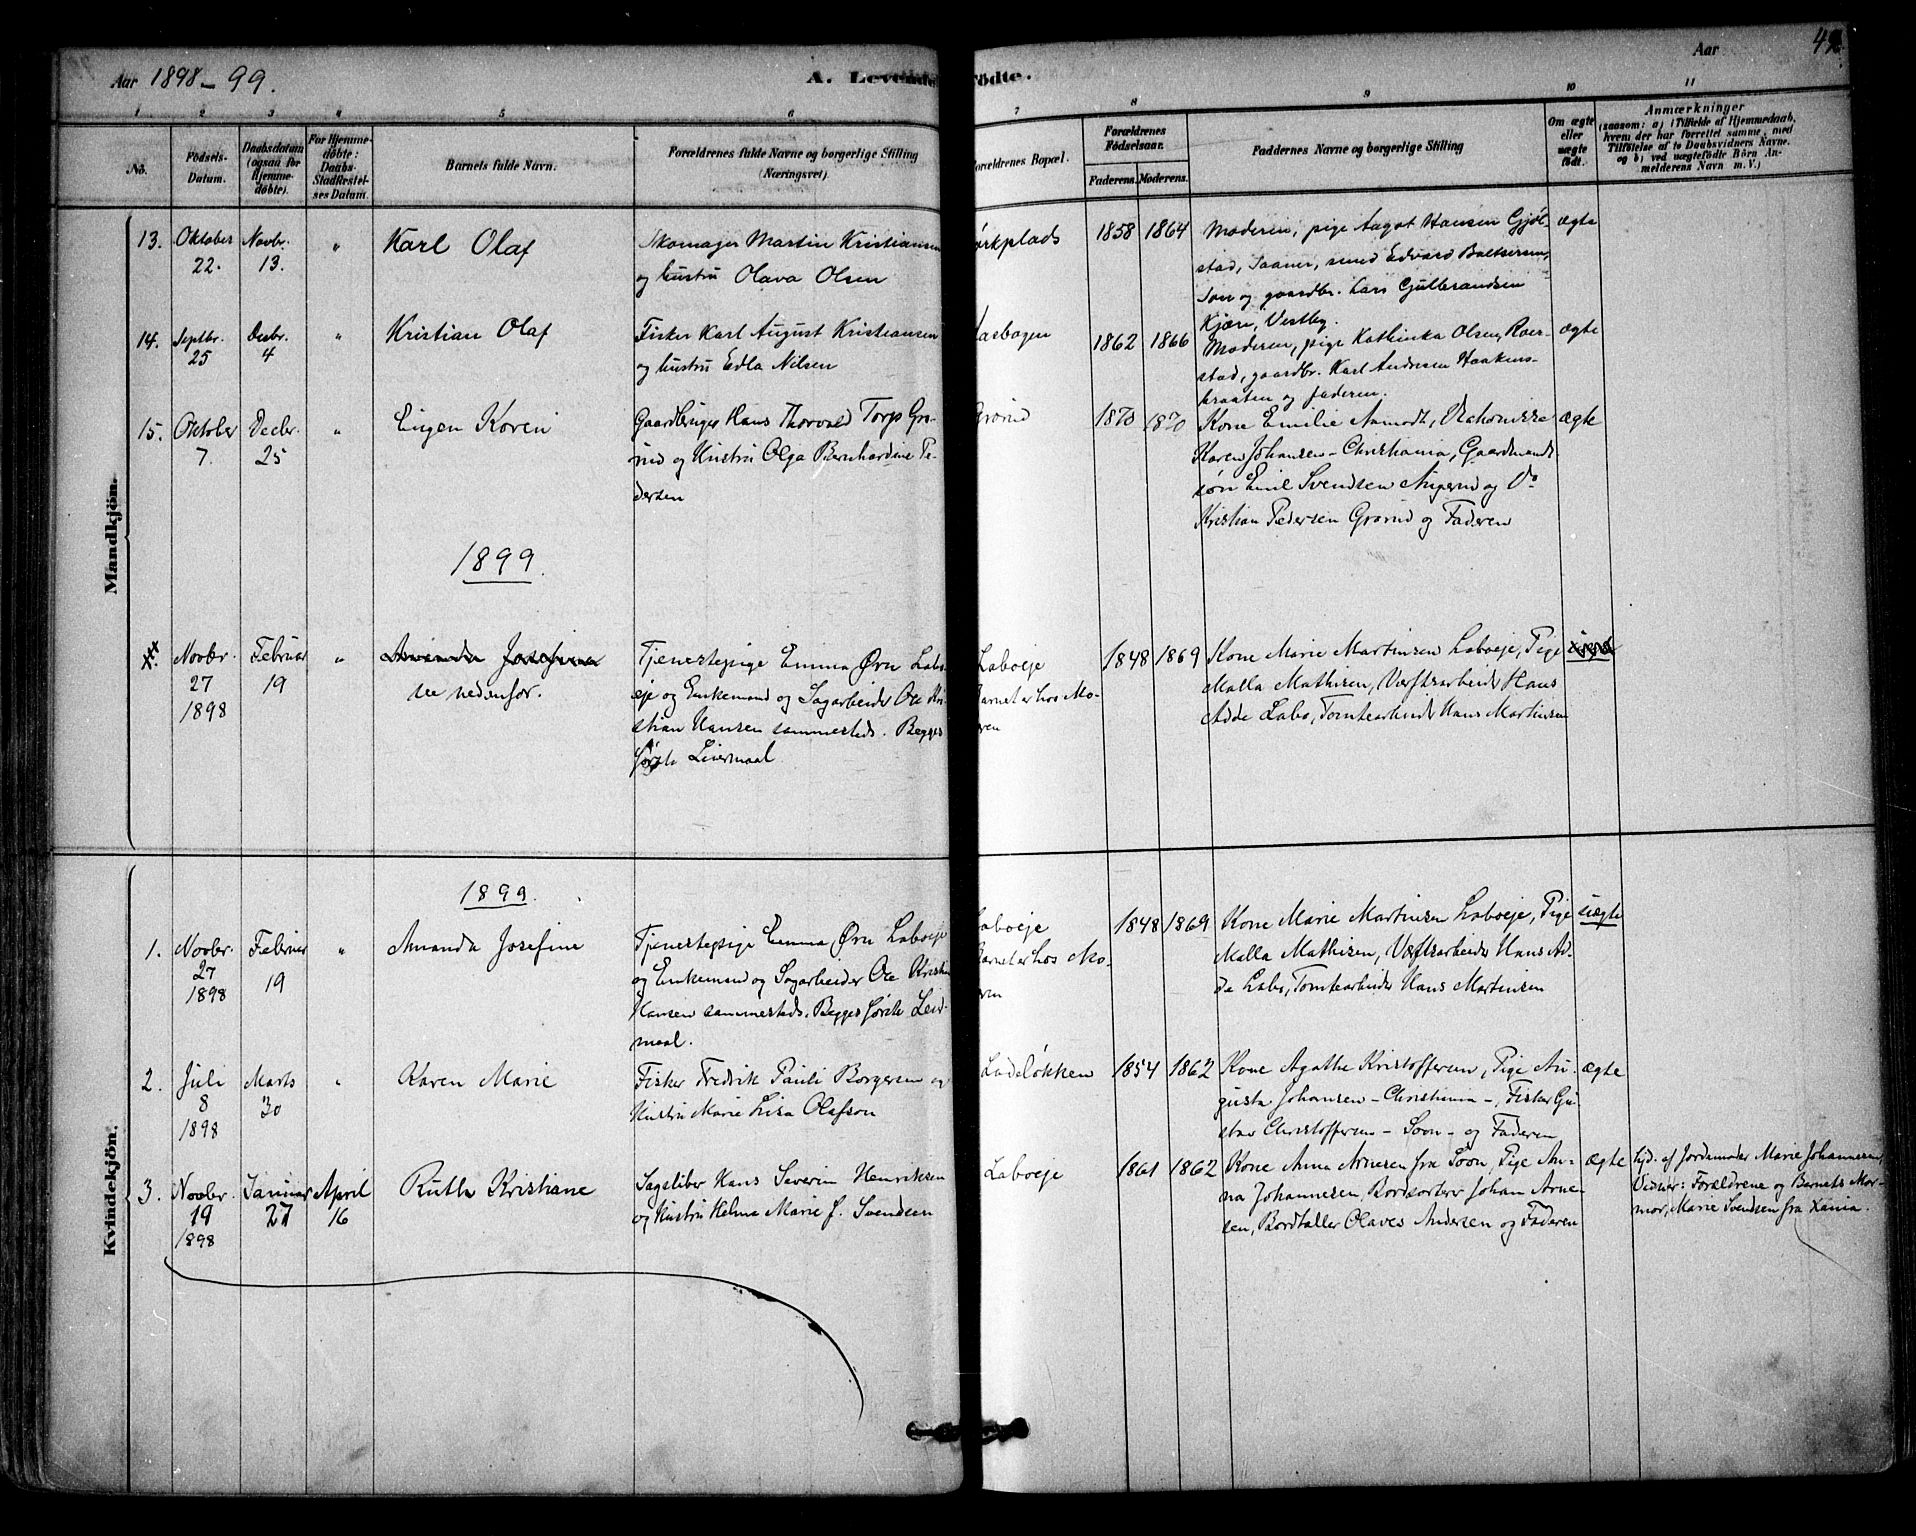 Aar 1898-99.
A. Levende Födte.
Aar
1 2 3 4 5 6 7 8 9 10 11
No.
Födsels-
Datum.
Daabsdatum
(ogsaa for
Hjemme-
döbte).
For Hjemme-
döbte:
Daabs-
Stadfæstel-
ses Datum.
Barnets fulde Navn.
Forældrenes fulde Navne og borgerlige Stilling
(Næringsvei).
Forældrenes Bopæl.
Forældrenes
Födselsaar.
Faderens. Moderens.
Faddernes Navne og borgerlige Stilling
Om ægte
eller
uægte
födt.
Anmærkninger
(saasom: a) i Tilfælde af Hjemmedaab,
hvem der har forrettet samme, med
Tilföielse af to Daabsvidners Navne,
og b) ved uægtefödte Börn An-
melderens Navn m. V.)
Mandkjön.
13.
Oktober
22.
Novbr.
13.
"
Karl Olaf
Skomager Martin Kristiansen
og hustru Olava Olsen
1858 1864
Moderen, pige Aagot Hansen Gjøl-
stad, Saaner, smed Edvard Baltsersen,
Son og gaardbr. Lars Gulbrandsen
Kjærn, Vestby.
ægte
14.
Septbr.
25
Decbr.
4
"
Kristian Olaf
Fisker Karl August Kristiansen
og hustru Edla Nilsen
1862 1866
Moderen, pige Kathinka Olsen, Roer-
stad, gaardbr. Karl Andresen Haakens-
braaten og faderen.
ægte
15.
Oktober
7.
Decbr.
25
"
Eugen Koren
Gaardbruger Hans Thorvald Torp Gro-
rud og Hustru Olga Bernhardine Pe-
dersen
Grorud
1870 1870
Kone Emilie Aamodt,
Karen Johansen - Christiania, Gaardmands
søn Emil Svendsen og Do
Kristian Pedersen Grorud og Faderen
ægte
1899.
Novbr.
27
1898
Februar
19
"
Amanda Josefine
se nedenfor.
Tjenestepige Emma Ørn Labo-
eje og Enkemand og Sagarbeider Ole Kri-
stian Hansen sammesteds. Begges
første Leiermaal
Laboeje
Barnet er hos Mo-
ren
1848 1869
Kone Marie Martinsen Laboeje, Pige
Malla Mathisen, Værftsarbeider Hans
Adde Labo, Tomtearbeider Hans Martinsen
Kvindekjön.
1899.
1.
Novbr.
27
1898
Februar
19
"
Amanda Josefine
Tjenestepige Emma Ørn Laboeje
og Enkemand og Sagarbeider Ole Kristian
Hansen sammesteds. Begges første Leier-
maal.
Laboeje
Barnet er hos Mo-
ren
1848 1869
Kone Marie Martinsen Laboeje, Pige
Malla Mathisen, Værftsarbeider Hans Ad-
de Labo, Tomtearbeider Hans Martinsen
uægte
2.
Juli
8
1898
Marts
30
"
Karen Marie
Fisker Fredrik Pauli Borgersen og
Hustru Marie Lisa Olafson
Ladeløkken
1854 1862
Kone Agathe Kristoffersen, Pige Au-
gusta Johansen - Christiania -, Fisker Gu-
stav Christoffersen - Soon - og Faderen
ægte
3.
Novbr.
19
1898
Januar
27
April
16
Ruth Kristiane
Sagsliber Hans Severin Henriksen
og Hustru Helma Marie f. Svendsen
Laboeje
1861 1862
Kone Anna Arnesen fra Soon, Pige An-
na Johannesen, Bordsorterer Johan Arne-
sen, Bordtæller Olaves Andersen og Faderen
ægte
hjd. af Jordemoder Marie Johannesen,
Vidner: Forældrene og Barnets Mor-
mor, Marie Svendsen fra Xania.